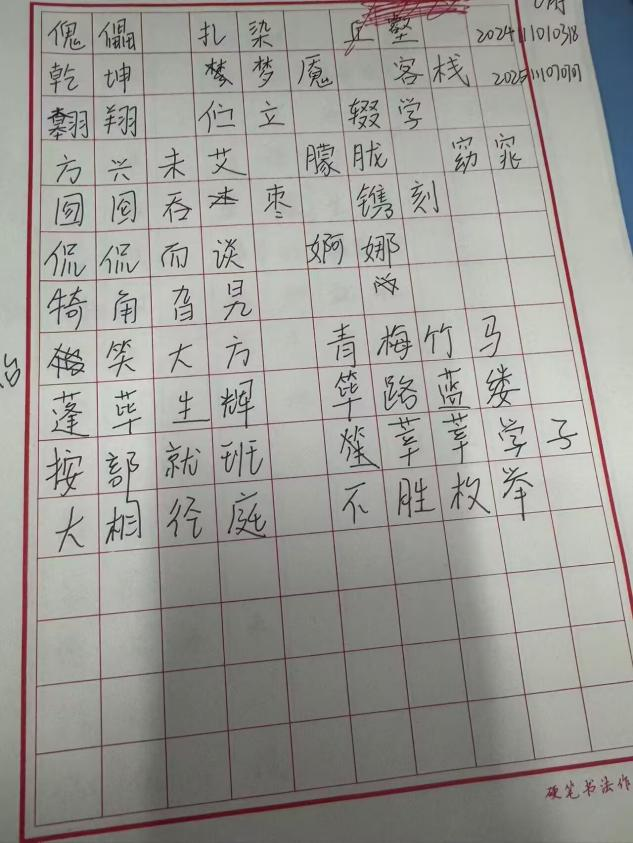 傀儡 扎染 丘壑 20241101038
乾坤 梦魇 客栈
翱翔 伫立 辍学
方兴未艾 朦胧 窈窕
囫囵吞枣 镌刻
侃侃而谈 婀娜
犄角旮旯
笑大方 青梅竹马
蓬荜生辉 筚路蓝缕
按部就班 莘莘学子
大相径庭 不胜枚举
硬笔书法作